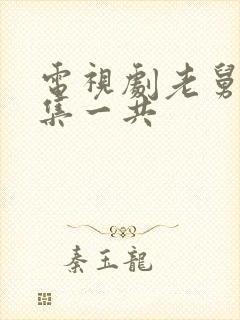 電視劇老舅
集一共
秦玉龍